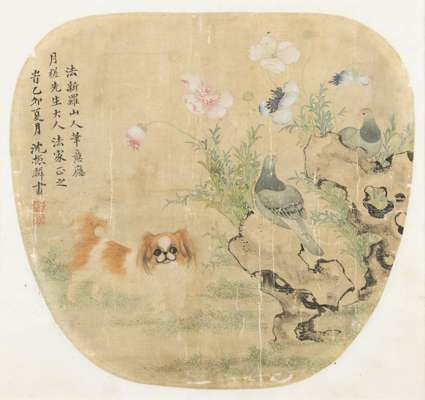 法新羅山人筆意應
月槎先生大人法家正之
旹乙卯夏月沈振麟畫